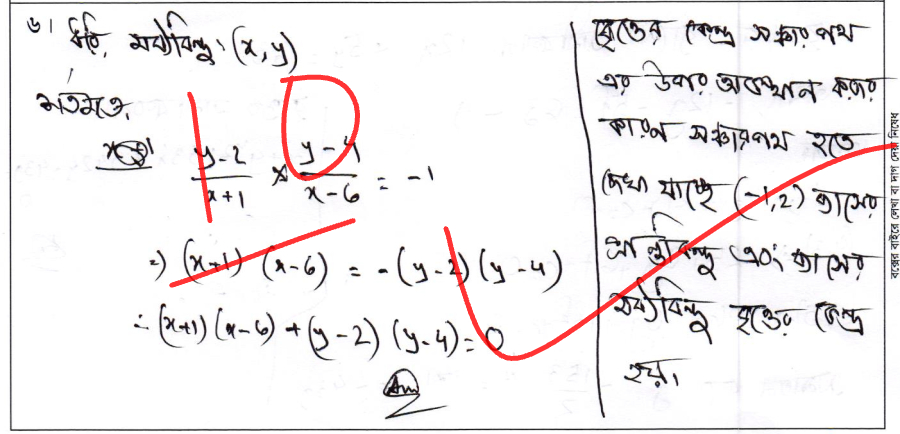 ৬। ধরি, মধ্যবিন্দু (x, y)
শর্তমতে,
y-2/x+1 × y-4/x-6 = -1
⇒ (x+1) (x-6) = -(y-2) (y-4)
∴ (x+1) (x-6) + (y-2) (y-4) = 0
Ans
বৃত্তের কেন্দ্র সঞ্চারপথ
এর উপর অবস্থান করার
কারণ সঞ্চারপথ হতে
দেখা যাচ্ছে (-1, 2) ব্যাসের
প্রান্তবিন্দু এবং ব্যাসের
মধ্যবিন্দু বৃত্তের কেন্দ্র
হয়।
বক্সের বাইরে লেখা বা দাগ দেয়া নিষেধ